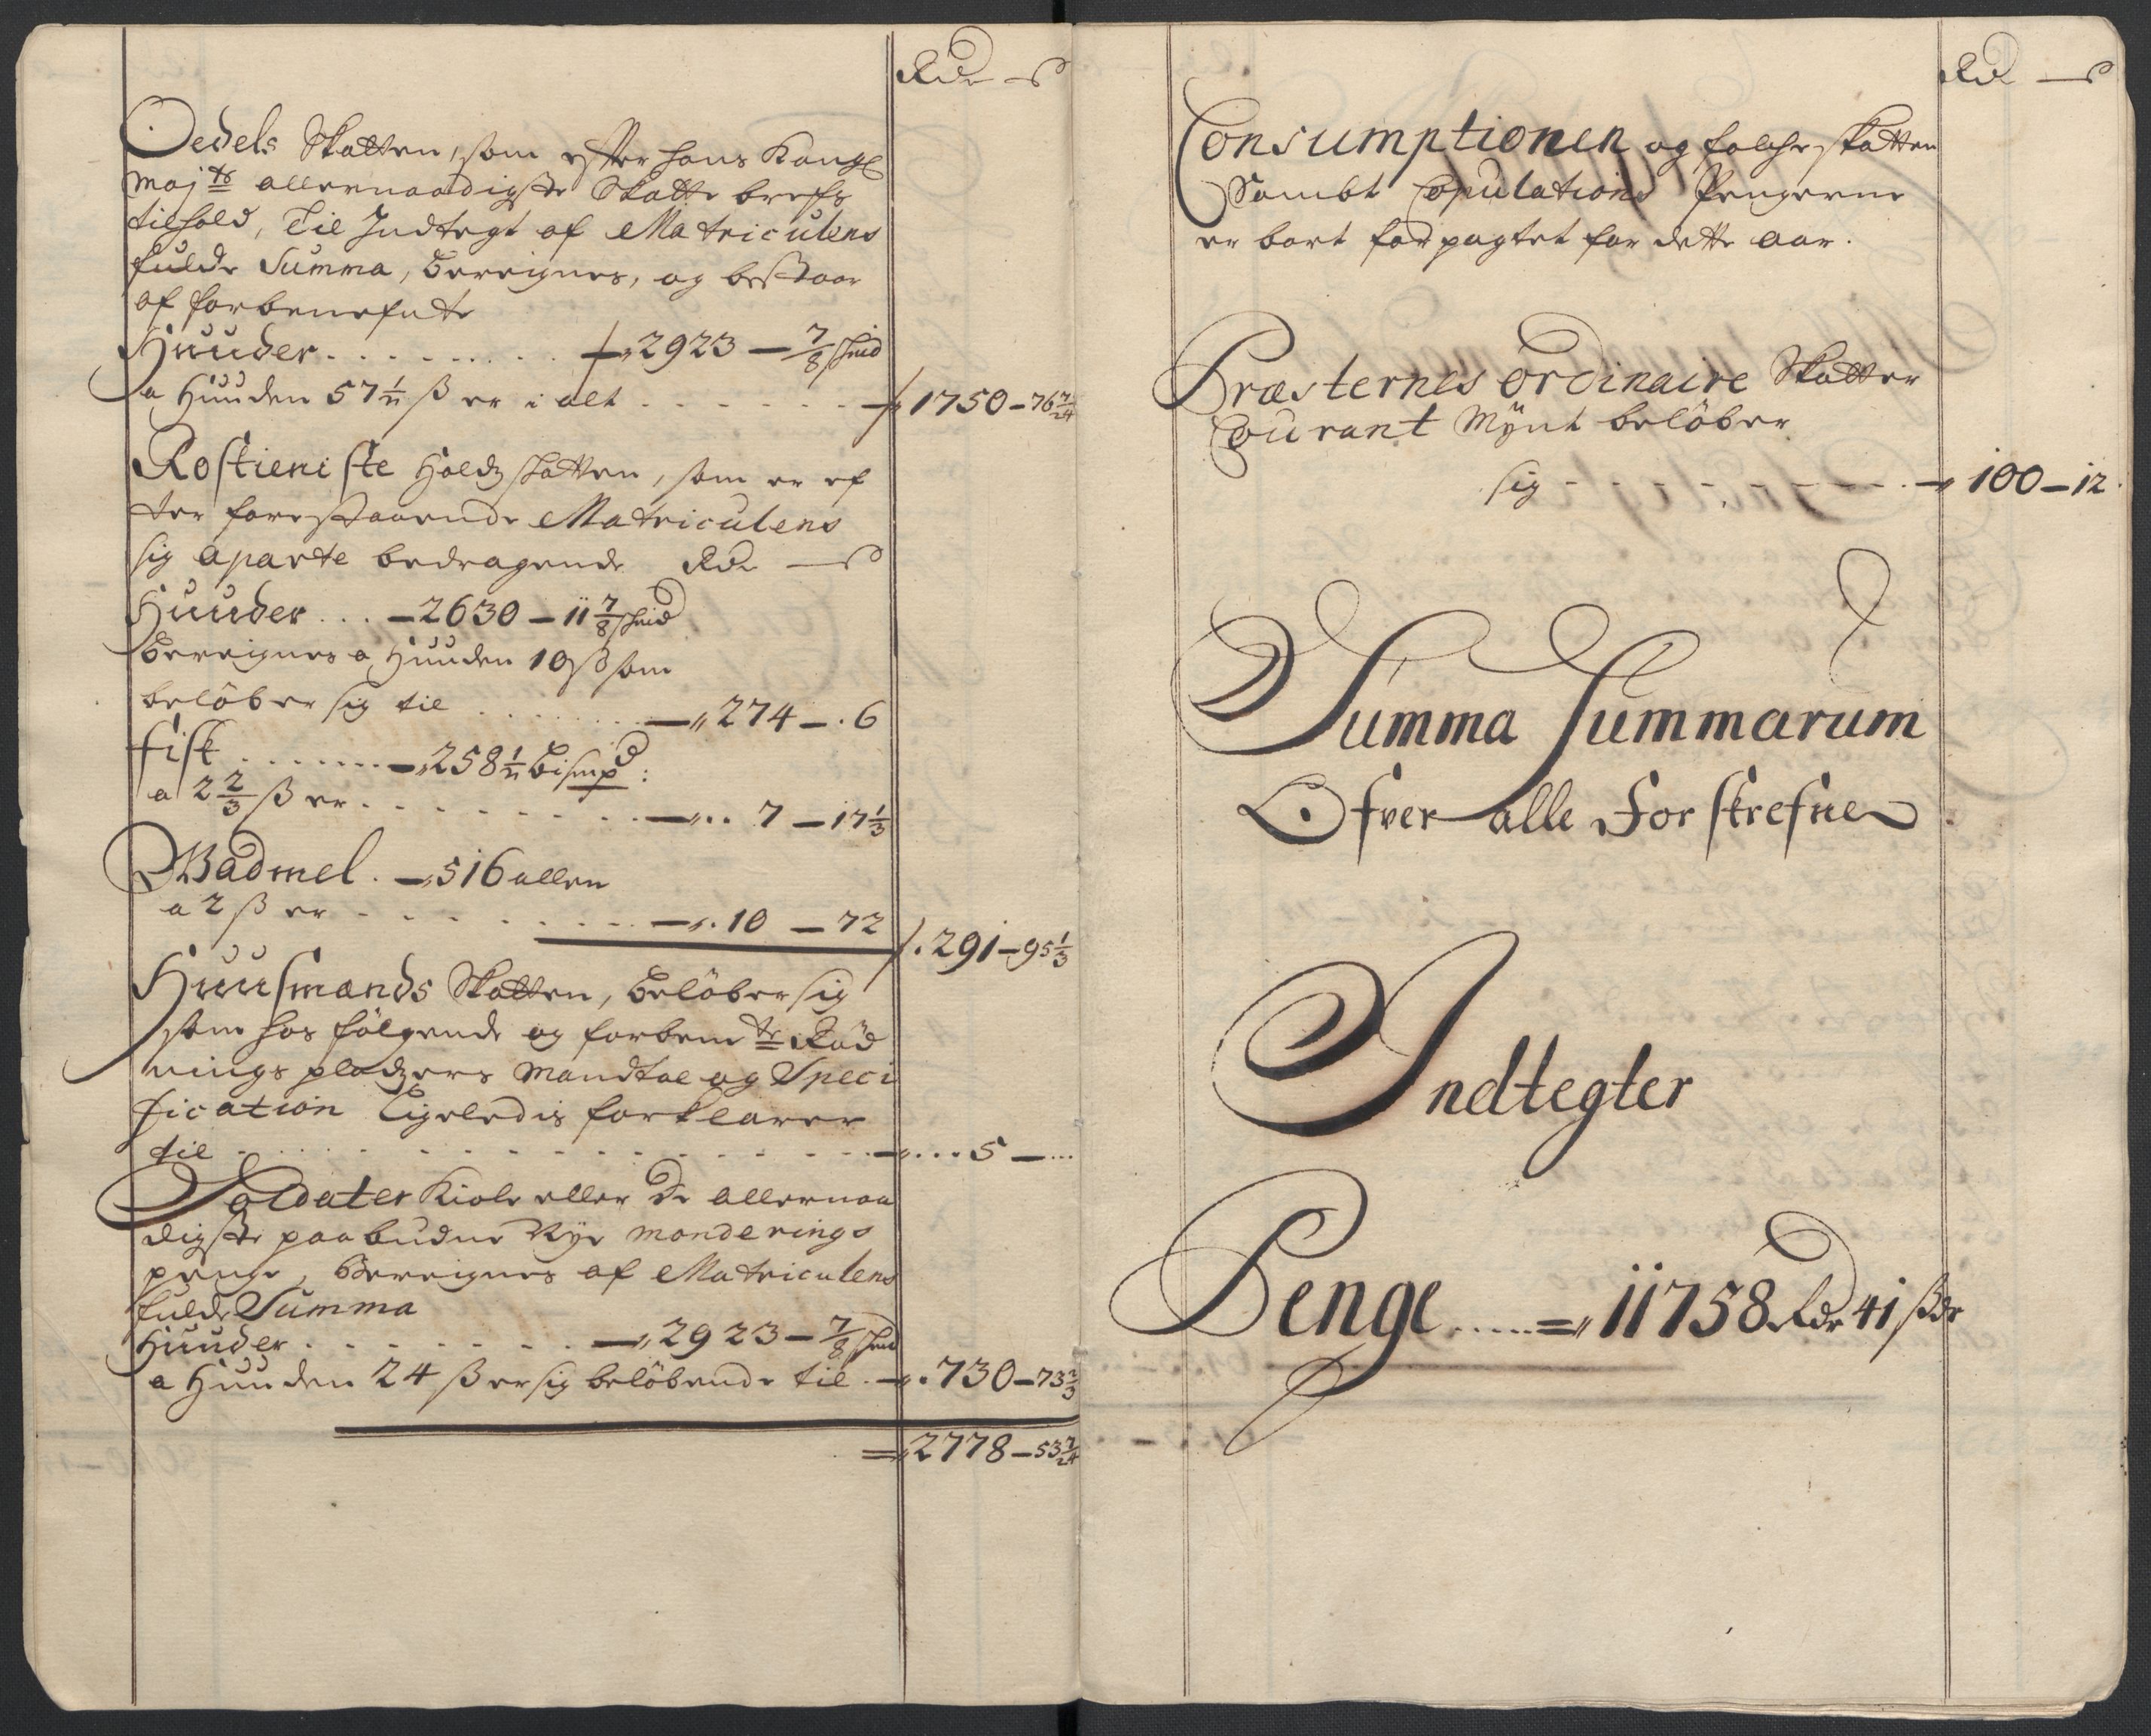 Rdr — ß
Oedels Skatten, som efter hans Kongl
Maj ts allernaadigste Skatte brefs
tilhold, Til Indtegt af Matriculens
fulde Summa, bereignes, og bestaar
af forbenefnte
Huuder . . . . . . . . . 2923 — 7/8 skind
a Huuden 57 1/2 ß er i alt . . . . . . . 1750 – 76 7/24
Rostieniste Holdz skatten, som er ef
ter forestaaende Matriculens
sig aparte bedragende Rdr — ß
Huuder . . . — 2630 — 11 7/8 skind
bereignes a Huuden 10 ß som
belöber sig til . . . . . . — 274 — . 6
Fisk . . . . . . . — 258 1/2 bismpd :
a 2 2/3 ß er . . . . . . . . — . . 7 — 17 1/3
Wadmel . — 516 allen
a 2 ß er . . . . . . . — . 10 — 72
. 291 – 95 1/3
Huusmands Skatten, belöber sig
som hos fölgende og forbem te Röd
nings pladzers Mandtal og Speci
fication ligeledis forklarer
til . . . . . . . . . . . — . . . 5 — . . .
Soldater Kiole eller de allernaa
digste paabudne Nye monderings
penge, Bereignes af Matriculens
fulde Summa
Huuder . . . . . . . — 2923 — 7/8 skind
a Huuden 24 ß er sig belöbende til . — . 730 – 73 2/3
= 2778 – 53 7/24
Rd — ß
Consumptionen og folche skatten
Sambt Copulations Pengerne
er bort forpagtet for dette aar.
Præsternes ordinaire Skatter
Courant Mÿnt belöber
sig - - - - - - - - 100 – 12
Summa Summarum
Ofver alle Forskrefne
Indtegter
Penge ..... = 11758 Rdr 41 ß dr